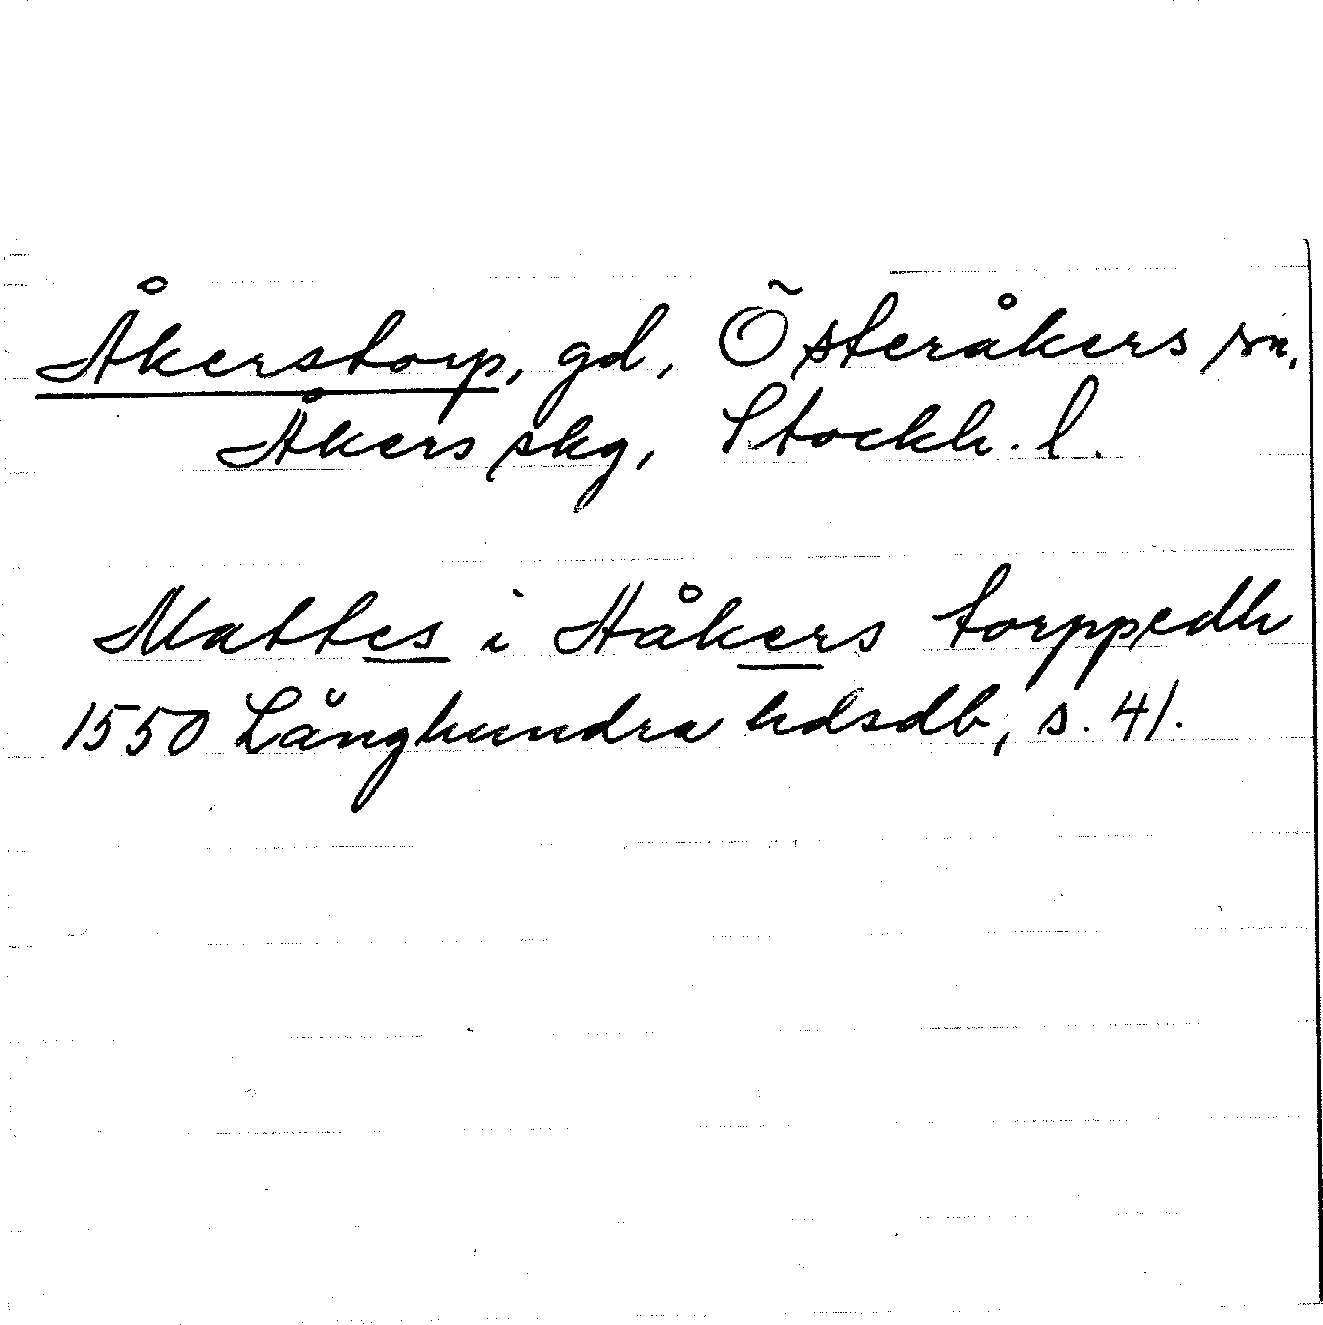 Åkerstorp, gd, Österåkers sn,
Åkers skg, Stockh. l.
Mattes i Håkers torppedh
1550 Långhundra hdsdb, s. 41.